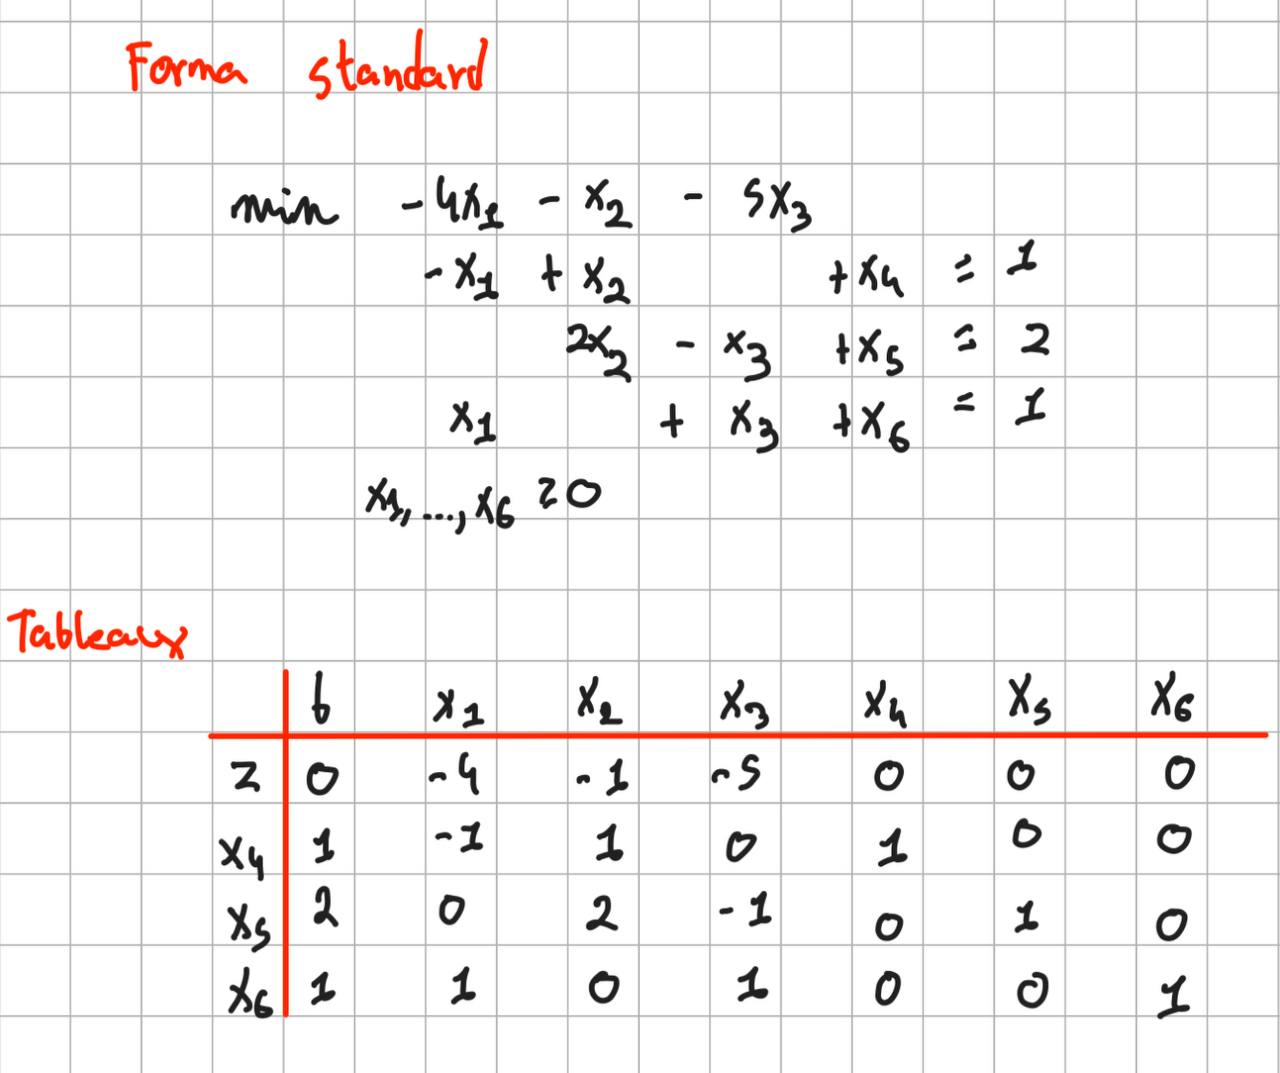 Forma standard
min -4x1 - x2 - 5x3
-x1 + x2 +x4 = 1
2x2 - x3 +x5 = 2
x1 + x3 +x6 = 1
x1,...,x6 ≥0
Tableaux
b x1 x2 x3 x4 x5 x6
z 0 -4 -1 -5 0 0 0
x4 1 -1 1 0 1 0 0
x5 2 0 2 -1 0 1 0
x6 1 1 0 1 0 0 1